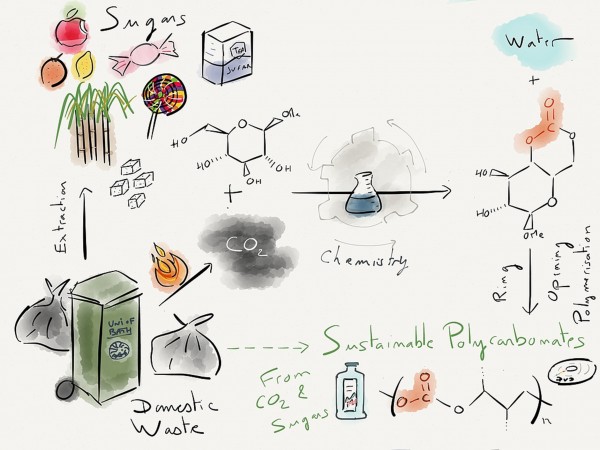 Sugars
Tea
Sugar
Water
+
O
C
O
O
HO
O
OMe
HO
OH
OH
+
HO
O
HO
OMe
Extraction
CO2
Chemistry
Ring
Opining
Polymerisation
UNI OF
BATH
Domestic
Waste
Sustainable Polycarbonates
From
CO2 &
Sugars
O
O-C
O
n